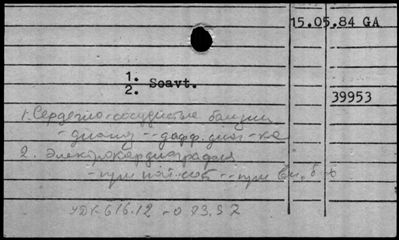 15.05.84 GA
1.
2. Soavt.
39953
1. Сердечно-сосудистые болезни
- диагн. -- дифф. диаг-ка
2. Электрокардиография
- при -- при
УДК 616.12-0 73.97